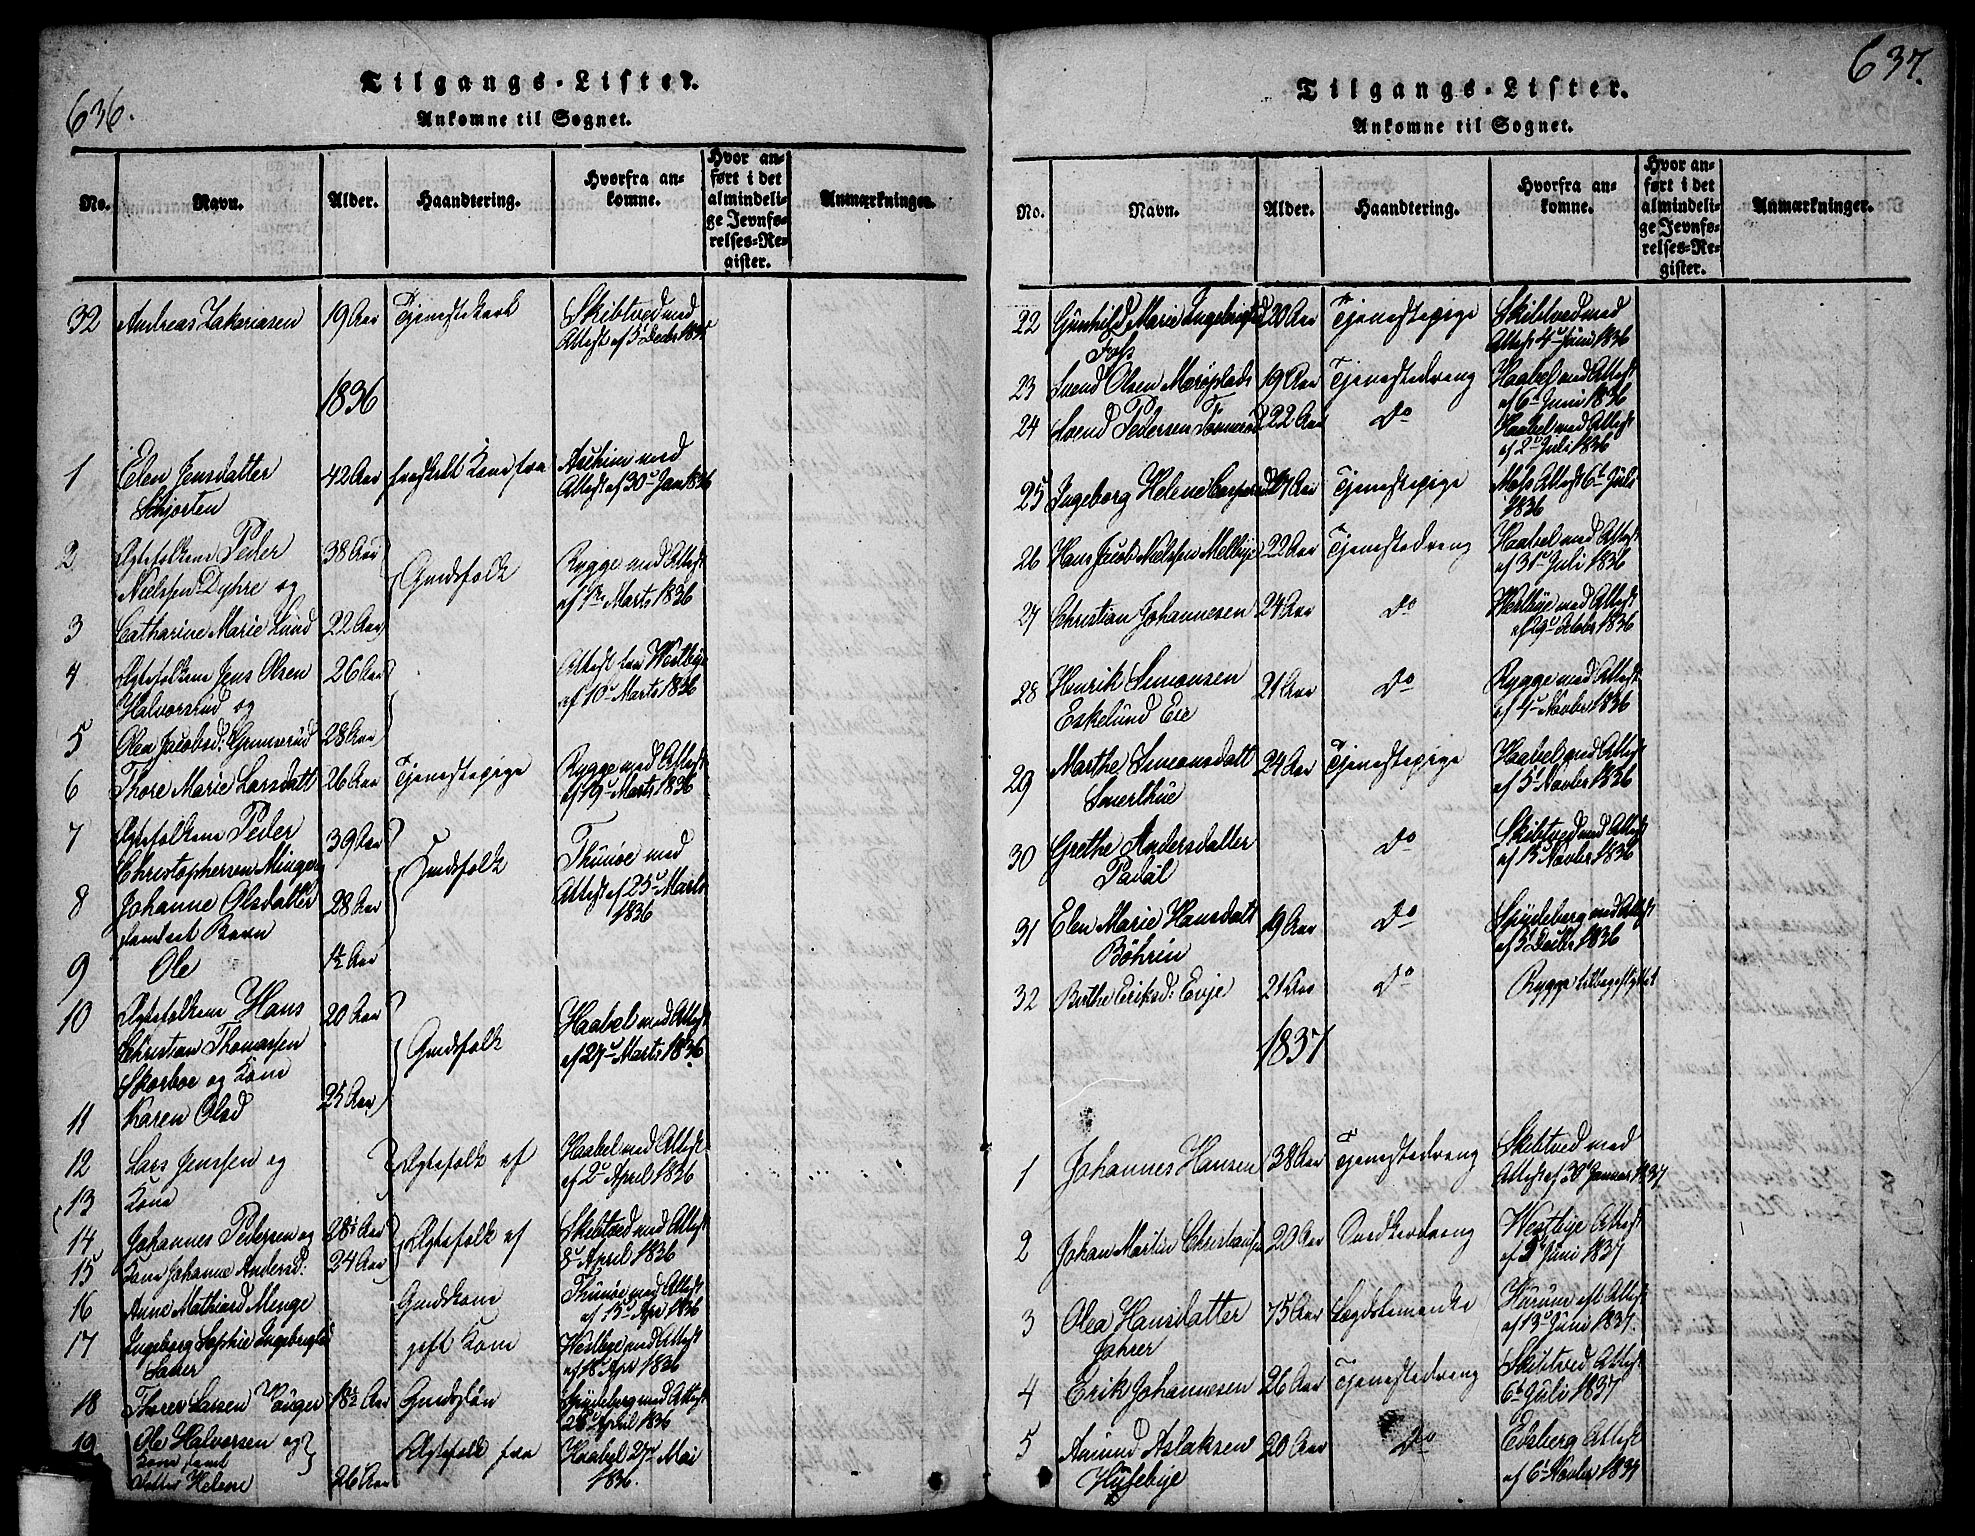 636.
Tilgangs-Lister.
Ankomne til Sognet.
No. Navn. Alder. Haandtering. Hvorfra ankomne. Hvor anført i det almindelige Jevnførelses-Register. Anmærkninger.
32 Andreas Zakariasen 19 Aar Tjenestekarl Skibtved med
Attest af 5 Decbr 1835
1836
1 Elen Jensdatter 42 Aar fraskilt Kone fra Aschim med
Schjorten Attest af 30 Jan 1836
2 Ægtefolkene Peder 38 Aar Gaardsfolk Rygge med Attest
Nielssen Dyhre og af 1 Marts 1836
3 Catharine Marie Lund 22 Aar
4 Ægtefolkene Jens Olsen 26 Aar Attest fra Westbye
Halvorsrud og af 10 Marts 1836
5 Olea Jacobsd: Grimsrud 28 Aar
6 Thore Marie Larsdatt 26 Aar Tjenestepige Rygge med Attest
af 19 Marts 1836
7 Ægtefolkene Peder 39 Aar Gaardsfolk Thunøe med
Christophersen Minge Attest af 25 Marts
8 Johanne Olsdatter 28 Aar 1836
samt et Barn
9 Ole 1½ Aar
10 Ægtefolkene Hans 20 Aar Gaardsfolk Haabel med Attest
Christian Thomassen af 27 Marts 1836
Skorboe og Kone
11 Karen Olsd 25 Aar
12 Lars Jenssen og Ægtefolk af Haabel med Attest
13 Kone af 2 April 1836
14 Johannes Pedersen og 28½ Aar Ægtefolk af Skibtved med Attest
15 Kone Johanne Andersd: 24 Aar 8 April 1836
16 Anne Mathisd Menge Gaardkone Thunøe med Attest
af 15 Apr 1836
17 Ingeborg Sophie Ingebrigtsd gift Kone Westbye med Attest
af 18 Apr 1836
18 Thores Larsen 18½ Aar Spydeberg med Attest
28 April 1836
19 Ole Halvorsen og Ægtefolk fra Haabel 27 Mai
Kone samt 1836.
Datter Helene 26 Aar
637.
Tilgangs-Lister.
Ankomne til Sognet.
No. Navn. Alder. Haandtering. Hvorfra ankomne. Hvor anført i det almindelige Jevnførelses-Register. Anmærkninger.
22 Gunhild Marie Ingebrigtsd 20 Aar Tjenestepige Skibtved med
Foss Attest 4 Juni 1836
23 Svend Olsen 19 Aar Tjenestedreng Haabel med Attest
af 6 Juni 1836
24 Svend Pedersen 22 Aar Do Haabel med Attest
af 2 Juli 1836
25 Ingeborg Helene 27 Aar Tjenestepige Moss Attest 6 Juli
1836
26 Hans Jacob Nielsen Melbye 22 Aar Tjenestedreng Haabel med Attest
af 31 Juli 1836
27 Christian Johannesen 24 Aar Do Westbye med Attest
af 29 Octbr 1836
28 Henrik Simonsen 21 Aar Do Rygge med Attest
Eskelund Eie af 4 Novbr 1836
29 Marthe Simonsdatt 24 Aar Tjenestepige Haabel med Attest
Smerthue af 5 Novbr 1836
30 Grethe Andersdatter Do Skibtved med Attest
af 15 Novbr 1836
31 Elen Marie Hansdatt 19 Aar Do Spydeberg med Attest
Bøhren af 3 Decbr 1836
32 Birthe Eriksd: Evje 21 Aar Do Rygge tilbageflyttet
1837
1 Johannes Hansen 38 Aar Tjenestedreng Skibtved med
Attest af 30 Januar 1837
2 Johan Martin Christians 20 Aar Westbye Attest
af 2 Juni 1837
3 Olea Hansdatter 75 Aar Lægdslem Attest
af 13 Juni 1837
4 Erik Johannesen 26 Aar Tjenestedreng Skibtved Attest
6 Juli 1837
5 Amund Aslaksen 20 Aar Do Edsberg Attest
Husebye af 6 Novbr 1837